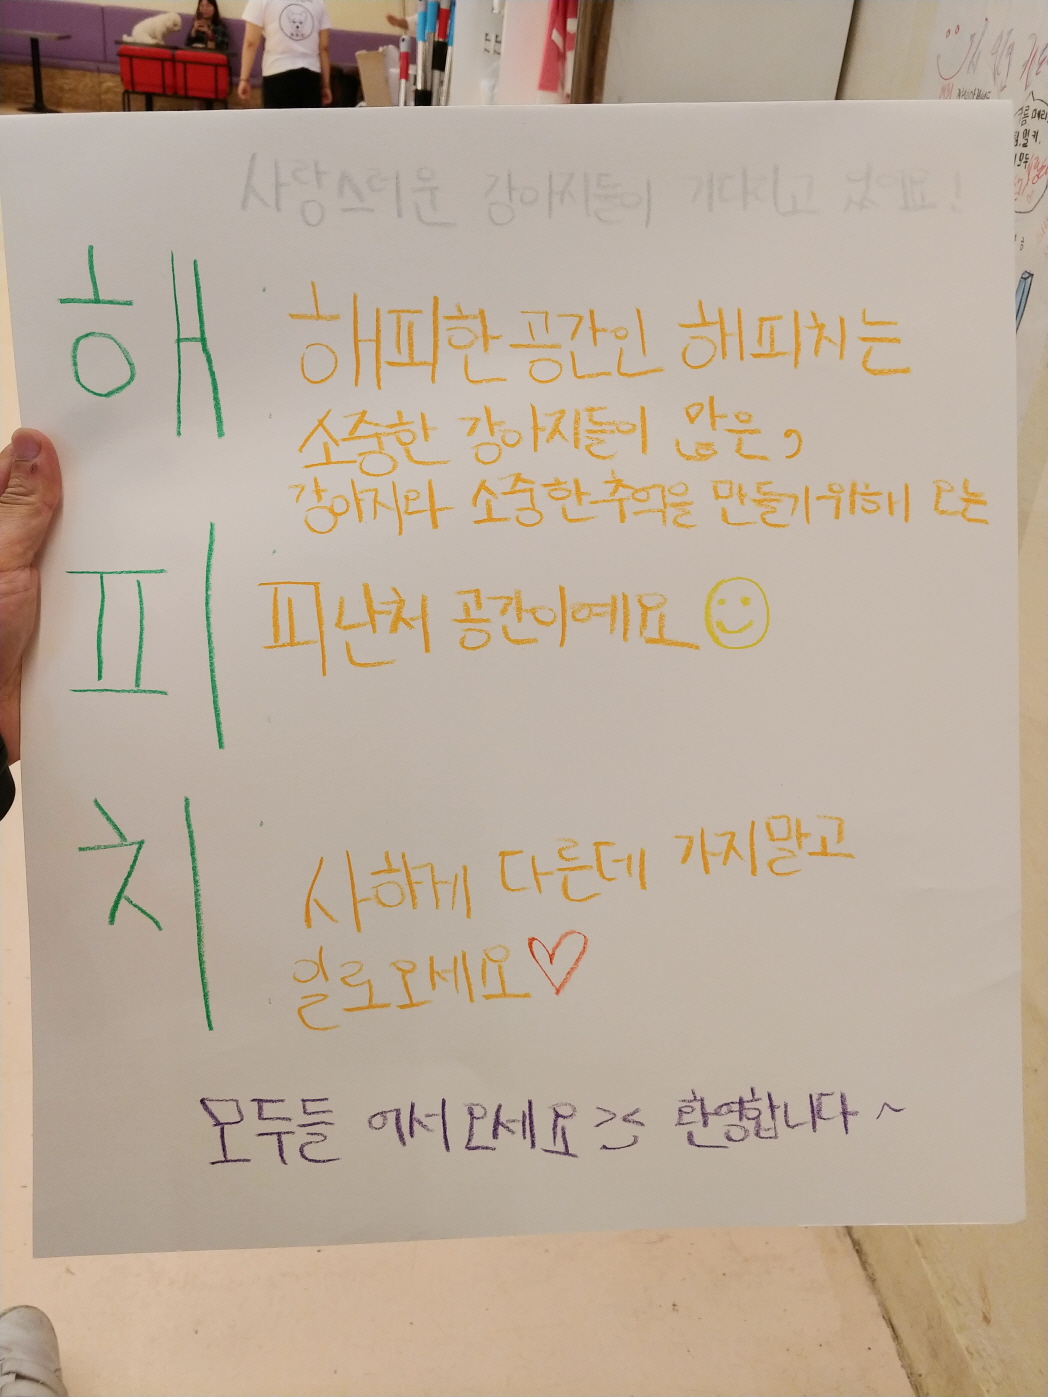 사랑스러운 강아지들이 기다리고 있어요!
해 해피한 공간인 해피치는
소중한 강아지들이 많은,
강아지와 소중한 추억을 만들기 위해 오는
피 피난처 공간이에요
치 사하게 다른데 가지말고
일로오세요♡
모두들 어서오세요 >< 환영합니다~